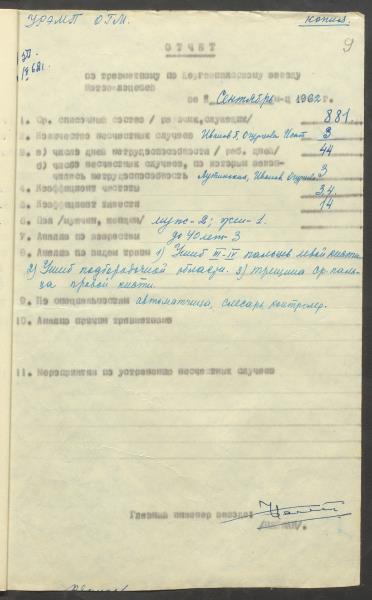 УРЭМП ОГМ. копия.
9
ОТЧЕТ
по травматизму по заводу
за Сентябрь м-ц 1962 г.
1. Ср. списочный состав / рабочих, служащих/ 881.
2. Количество несчастных случаев Иванов Г, 3
3. а) число дней нетрудоспособности / раб. дней/ 44
б) число несчастных случаев, по которым закон-
чилась нетрудоспособность Иванов 3
4. Коэффициент частоты 3,4.
5. Коэффициент тяжести 14
6. Пол /мужчин, женщин/ муж-2; жен-1.
7. Анализ по возрастам до 40 лет-3
8. Анализ по видам травм 1) Ушиб III-IV пальцев левой кисти
2) Ушиб подбородочной области. 3) трещина ср. паль-
ца правой кисти.
9. По специальностям автоматчица, слесарь, контролер.
10. Анализ причин травматизма
11. Мероприятия по устранению несчастных случаев
Главный инженер завода: